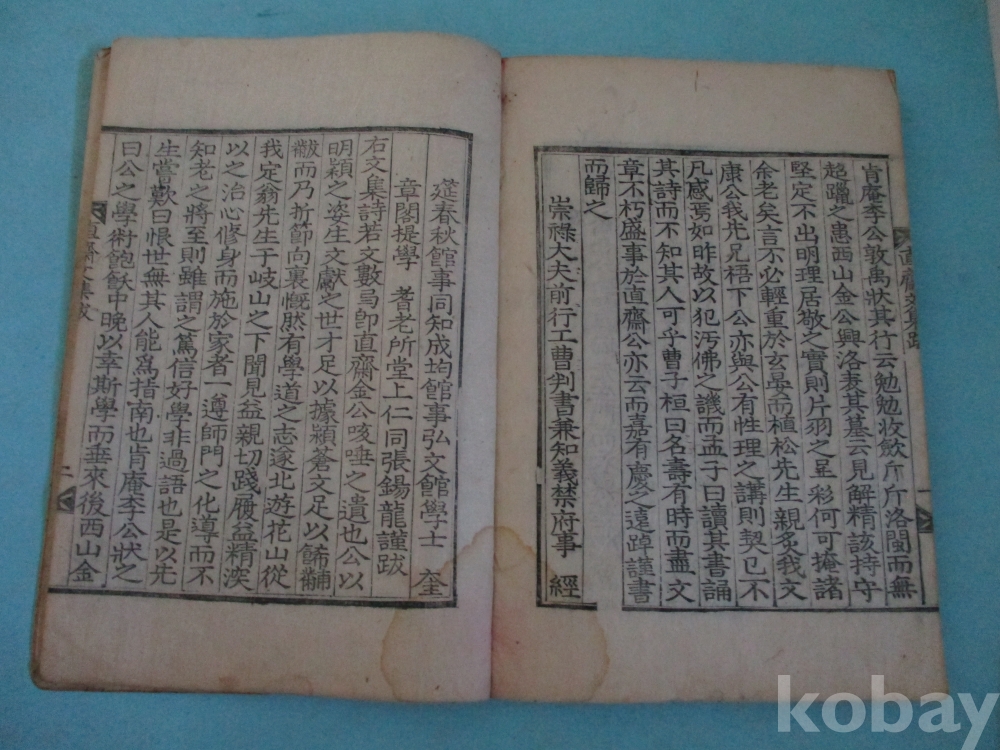 肯庵李公敦禹狀其行云勉勉收斂斤斤洛閩而無
超躐之患西山金公興洛表其墓云見解精該持守
堅定不出明理居敬之實則片羽之呈彩何可掩諸
余老矣言不必輕重於玄晏而植松先生親炙我文
康公我先兄梧下公亦與公有性理之講則契已不
凡感焉如昨故以犯汚佛之譏而孟子曰讀其書誦
其詩而不知其人可乎曹子桓曰名壽有時而盡文
章不朽盛事於直齋公亦云而嘉有慶之遠踔謹書
而歸之
崇祿大夫前行工曹判書兼知義禁府事 經
筵春秋館事同知成均館事弘文館學士 奎
章閣提學 耆老所堂上仁同張錫龍謹跋
右文集詩若文數𢎥卽直齋金公咳唾之遺也公以
明穎之姿生文獻之世才足以據穎蒼文足以餙黼
黻而乃折節向裏慨然有學道之志遂北遊花山從
我定翁先生于岐山之下聞見益親切踐履益精深
以之治心修身而施於家者一遵師門之化導而不
知老之將至則雖謂之篤信好學非過語也是以先
生嘗歎曰恨世無其人能爲指南也肯庵李公狀之
曰公之學術飽飫中晚以幸斯學而垂來後西山金
二
kobay